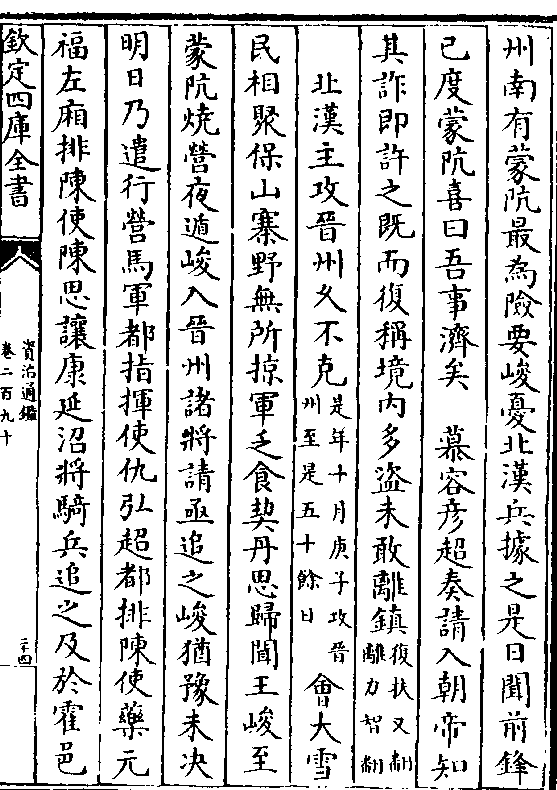 州南有蒙阬最為險要峻憂北漢兵據之是日聞前鋒
已度蒙阬喜曰吾事濟矣　慕容彦超奏請入朝帝知
其詐即許之既而復稱境内多盗未敢離鎮復扶又翻離力智翻
北漢主攻晉州久不克是年十月庚子攻晉州至是五十餘日會大雪
民相聚保山寨野無所掠軍乏食契丹思歸聞王峻至
蒙阬燒營夜遁峻入晉州諸將請亟追之峻猶豫未決
明日乃遣行營馬軍都指揮使仇弘超都排陳使藥元
福左廂排陳使陳思讓康延沼將騎兵追之及於霍邑
欽定四庫全書
資治通鑑
卷二百九十
二十四